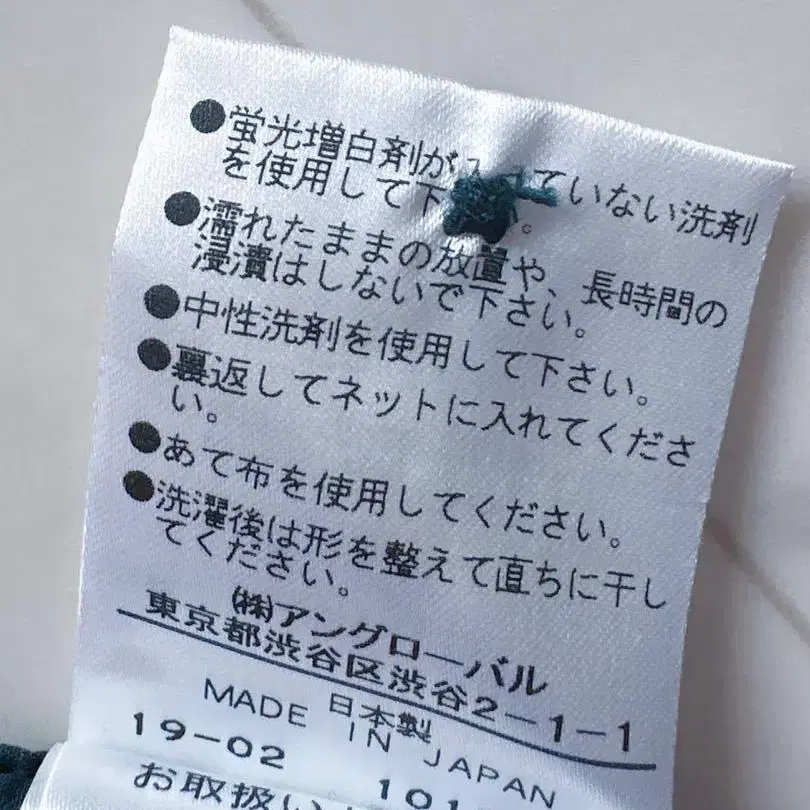 ●蛍光増白剤が入っていない洗剤
を使用して下さい。
●濡れたままの放置や、長時間の
浸漬はしないで下さい。
●中性洗剤を使用して下さい。
●裏返してネットに入れてくださ
い。
●あて布を使用してください。
●洗濯後は形を整えて直ちに干し
てください。
㈱アングローバル
東京都渋谷区渋谷2-1-1
日本製
MADE IN JAPAN
19-02 101
お取扱い